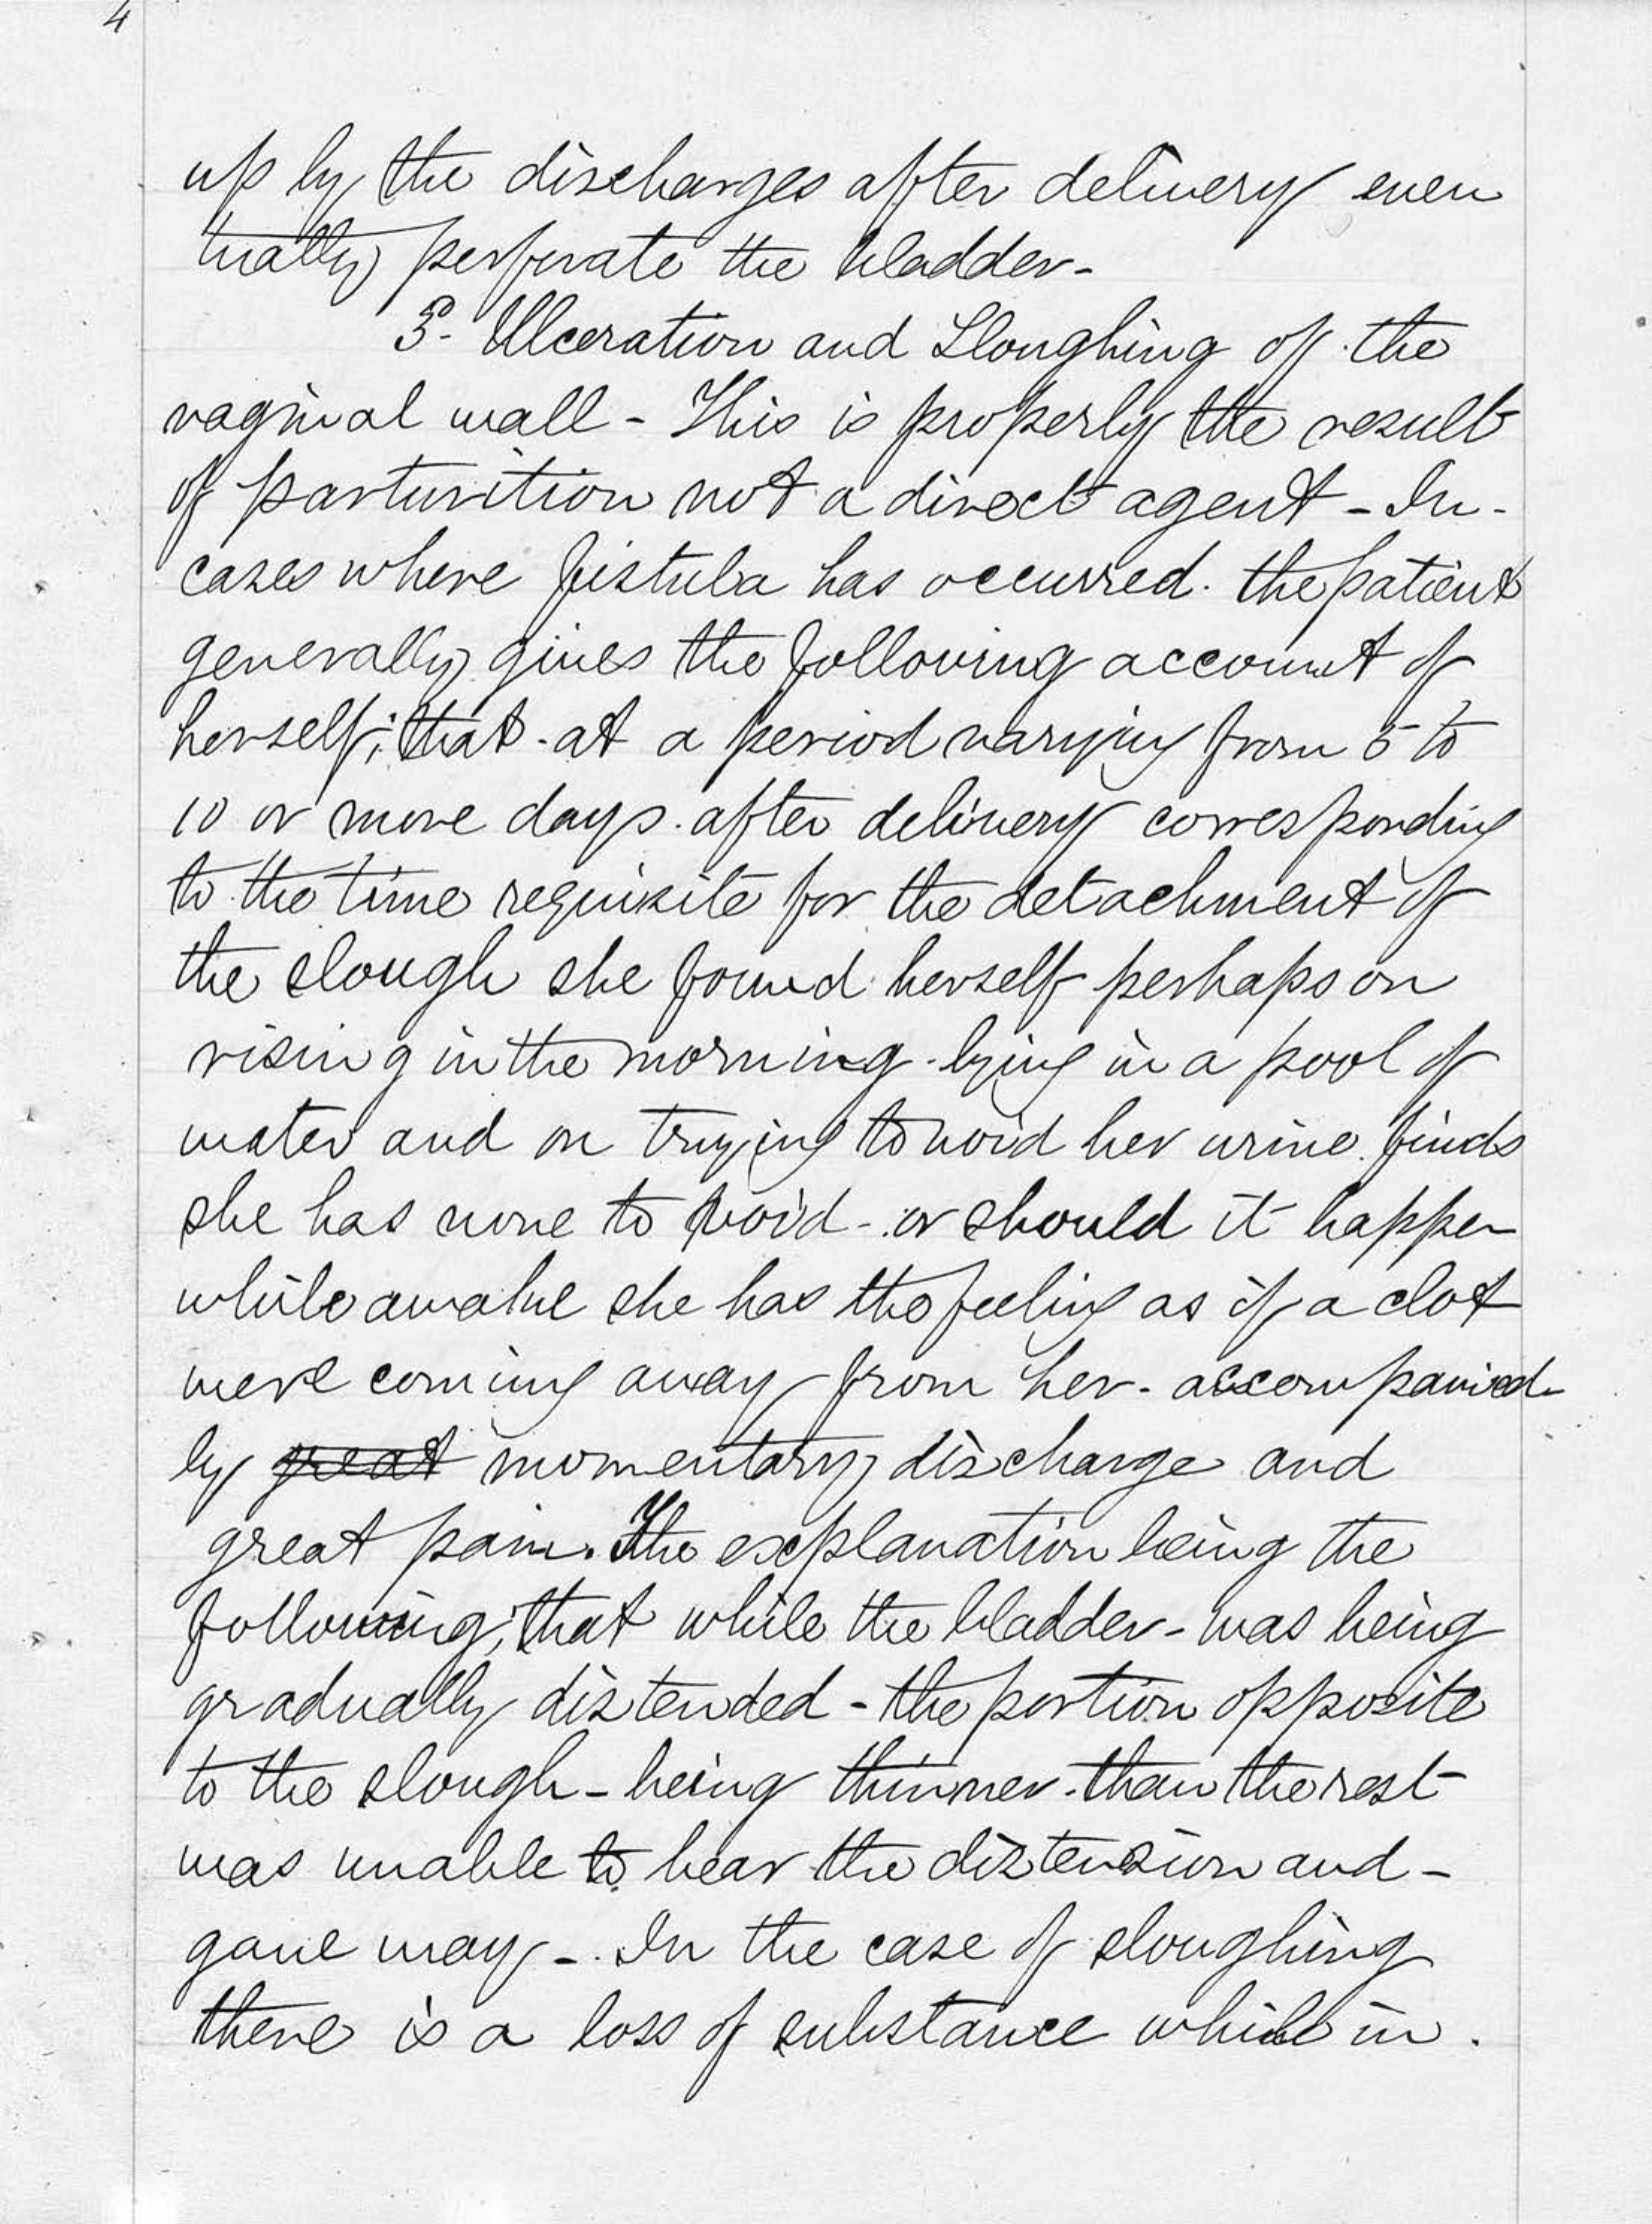 4
up by the discharges after delivery even
tually perforate the bladder-
3- Ulceration and Sloughing of the
vaginal wall - This is properly the result
of parturition not a direct agent - In-
cases where fistula has occurred. the patient
generally gives the following account of
herself; that at a period varying from 5 to
10 or more days. after delivery corresponding
to the time requisite for the detachment of
the slough she found herself perhaps on
rising in the morning - lying in a pool of
water and on trying to void her urine. finds
she has none to void - or should it happen
while awake she has the feeling as if a clot
were coming away from her - accompanied
by great momentary discharge and
great pain. The explanation being the
following; that while the bladder - was being
gradually distended - the portion opposite
to the slough - being thinner than the rest
was unable to bear the distension and -
gave way - In the case of sloughing
there is a loss of substance while in.